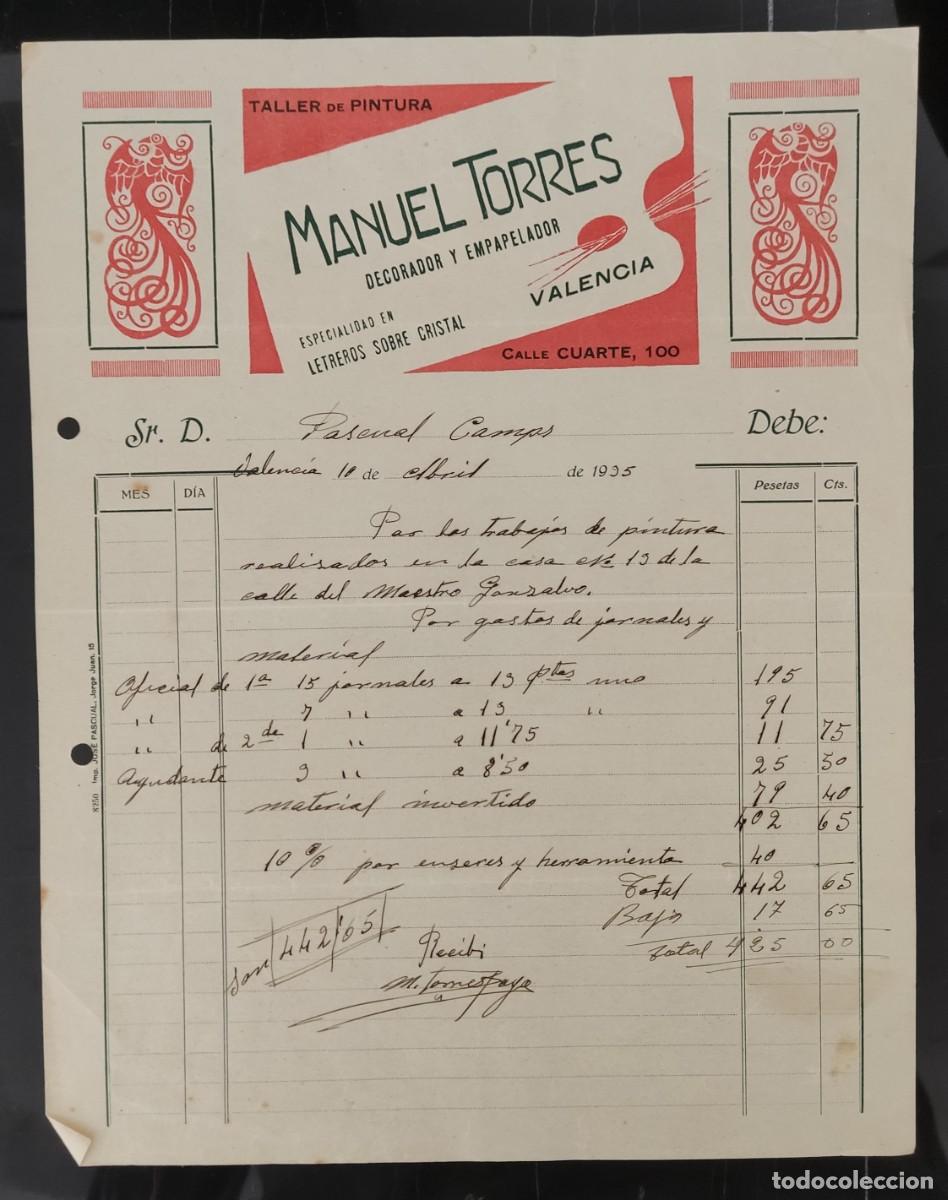 TALLER DE PINTURA
MANUEL TORRES
DECORADOR Y EMPAPELADOR
VALENCIA
ESPECIALIDAD EN
LETREROS SOBRE CRISTAL
CALLE CUARTE, 100
Sr. D. Pascual Camps Debe:
Valencia 10 de Abril de 1935
MES DÍA Pesetas Cts.
Por los trabajos de pintura
realisados en la casa Nº 13 de la
calle del Maestro Gonzalvo.
Por gastos de jornales y
material
Oficial de 1a 15 jornales a 13 Ptas uno 195
" 7 " a 13 " 91
" de 2de 1 " a 11'75 11 75
Ayudante 3 " a 8'50 25 50
material invertido 79 40
402 65
10% por enseres y herramienta 40
Total 442 65
Baja 17 65
Total 425 00
Son 442'65
Recibi
M. Torres
8250 Imp. JOSÉ PASCUAL. Jorge Juan, 15
todocoleccion